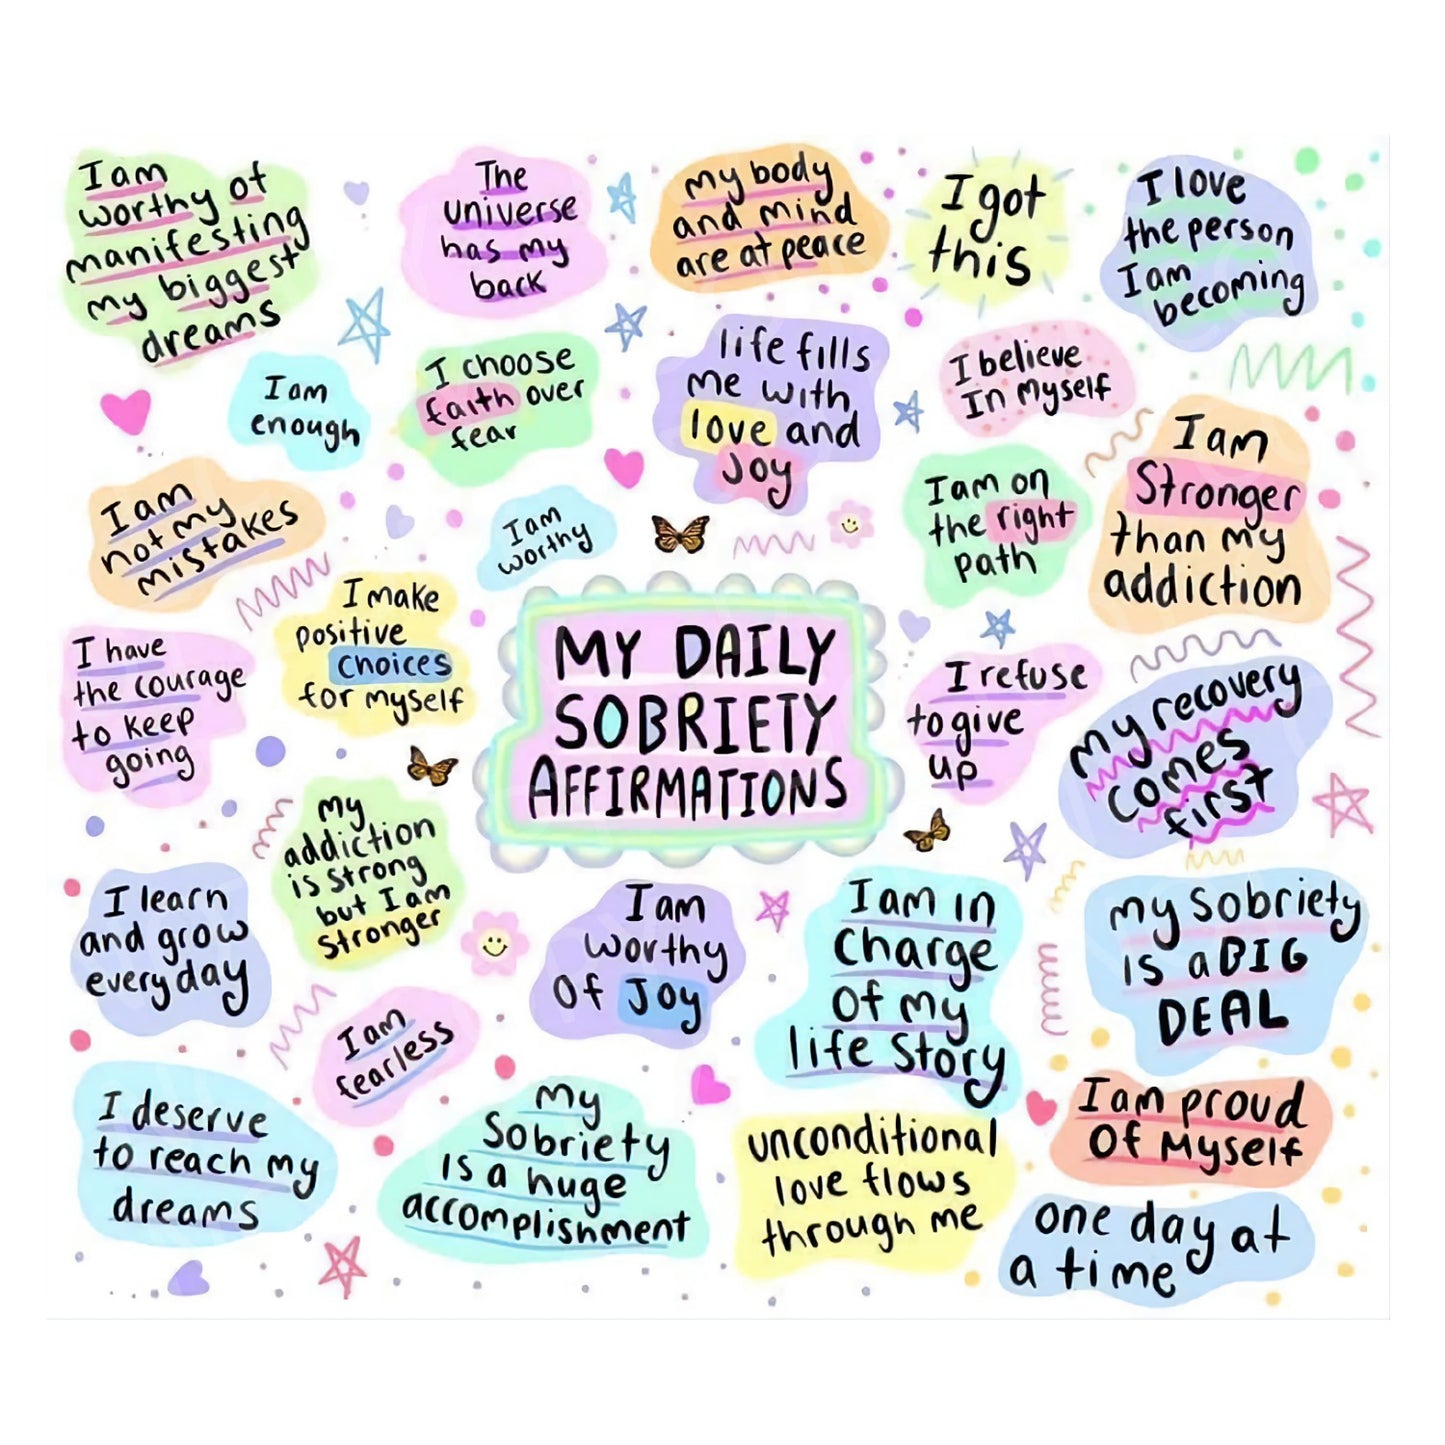 I am
worthy of
manifesting
my biggest
dreams
The
universe
has my
back
my body
and mind
are at peace
I got
this
I love
the person
I am
becoming
I am
enough
I choose
faith over
fear
life fills
me with
love and
Joy
I believe
In myself
I am
not my
mistakes
I am
worthy
I am on
the right
path
I am
Stronger
than my
addiction
I make
positive
choices
for myself
MY DAILY
SOBRIETY
AFFIRMATIONS
I have
the courage
to keep
going
I refuse
to give
up
my recovery
comes
first
my
addiction
is strong
but I am
stronger
I learn
and grow
everyday
I am
worthy
of Joy
I am in
charge
of my
life story
my sobriety
is a BIG
DEAL
I am
fearless
I deserve
to reach my
dreams
my
Sobriety
is a huge
accomplishment
unconditional
love flows
through me
I am proud
of myself
one day at
a time